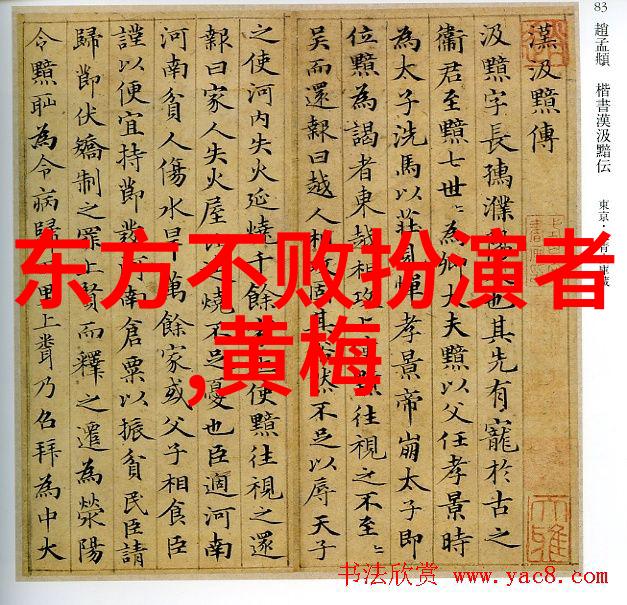 83 趙孟頫 楷書漢汲黯伝 東京・
漢汲黯傳
汲黯字長孺濮也其先有寵於古之
衛君至黯七世〻為卿大夫黯以父任孝景時
為太子洗馬以莊見憚孝景帝崩太子即
位黯為謁者東越相攻上黯往視之不至〻
吳而還報曰越人相攻固其俗然不足以辱天子
之使河内失火延燒千餘使黯往視之還
報曰家人失火屋燒不足憂也臣適河南
河南貧人傷水旱萬餘家或父子相食臣
謹以便宜持節發河南倉粟以振貧民臣請
歸節伏矯制之罪上賢而釋之遷為滎陽
令黯恥為令病歸里上聞乃召拜為中大
东方不败扮演者
,黄梅
书法欣赏 www.yac8.com